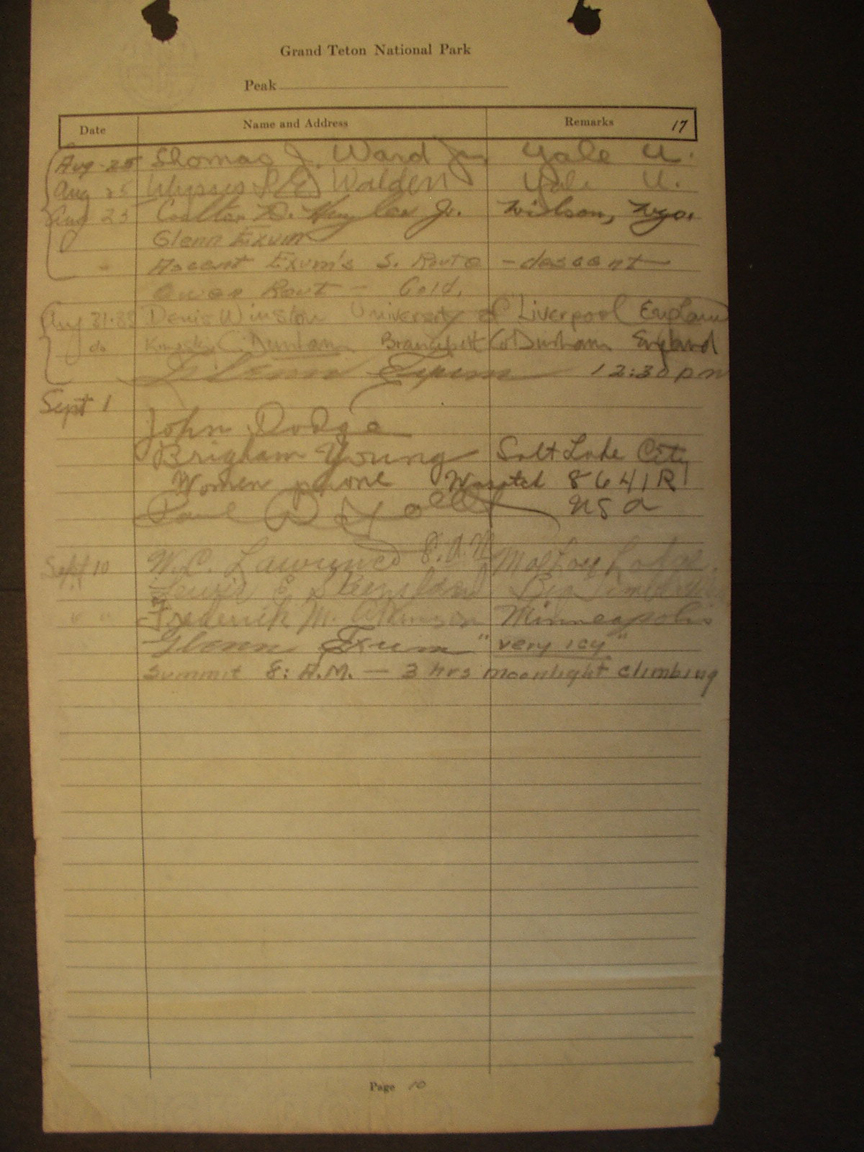 Grand Teton National Park
Peak
Date Name and Address Remarks 17
Aug - 25 Thomas J. Ward Jr. Yale U.
Aug 25 Ulysses S. G. Walden Yale U.
Aug 25 Coulter D. Jr. Wilson, Wyo.
Glenn Exum
" Ascent Exum's S. Route - descent
Owen Rout - Cold.
Aug 31 Denis Winston University of Liverpool England
do C. Brancepeth Co Durham England
Glenn Exum 12:30 pm
Sept 1
John Dodge
Brigham Young Salt Lake City
Women phone Wasatch 8641R
Paul USA
Sept 10 W.C. Lawrence 8. A.M
Lewis E.
" " Frederick M. Minneapolis
Glenn Exum "very icy"
Summit 8: A.M. — 3 hrs moonlight climbing
Page 10